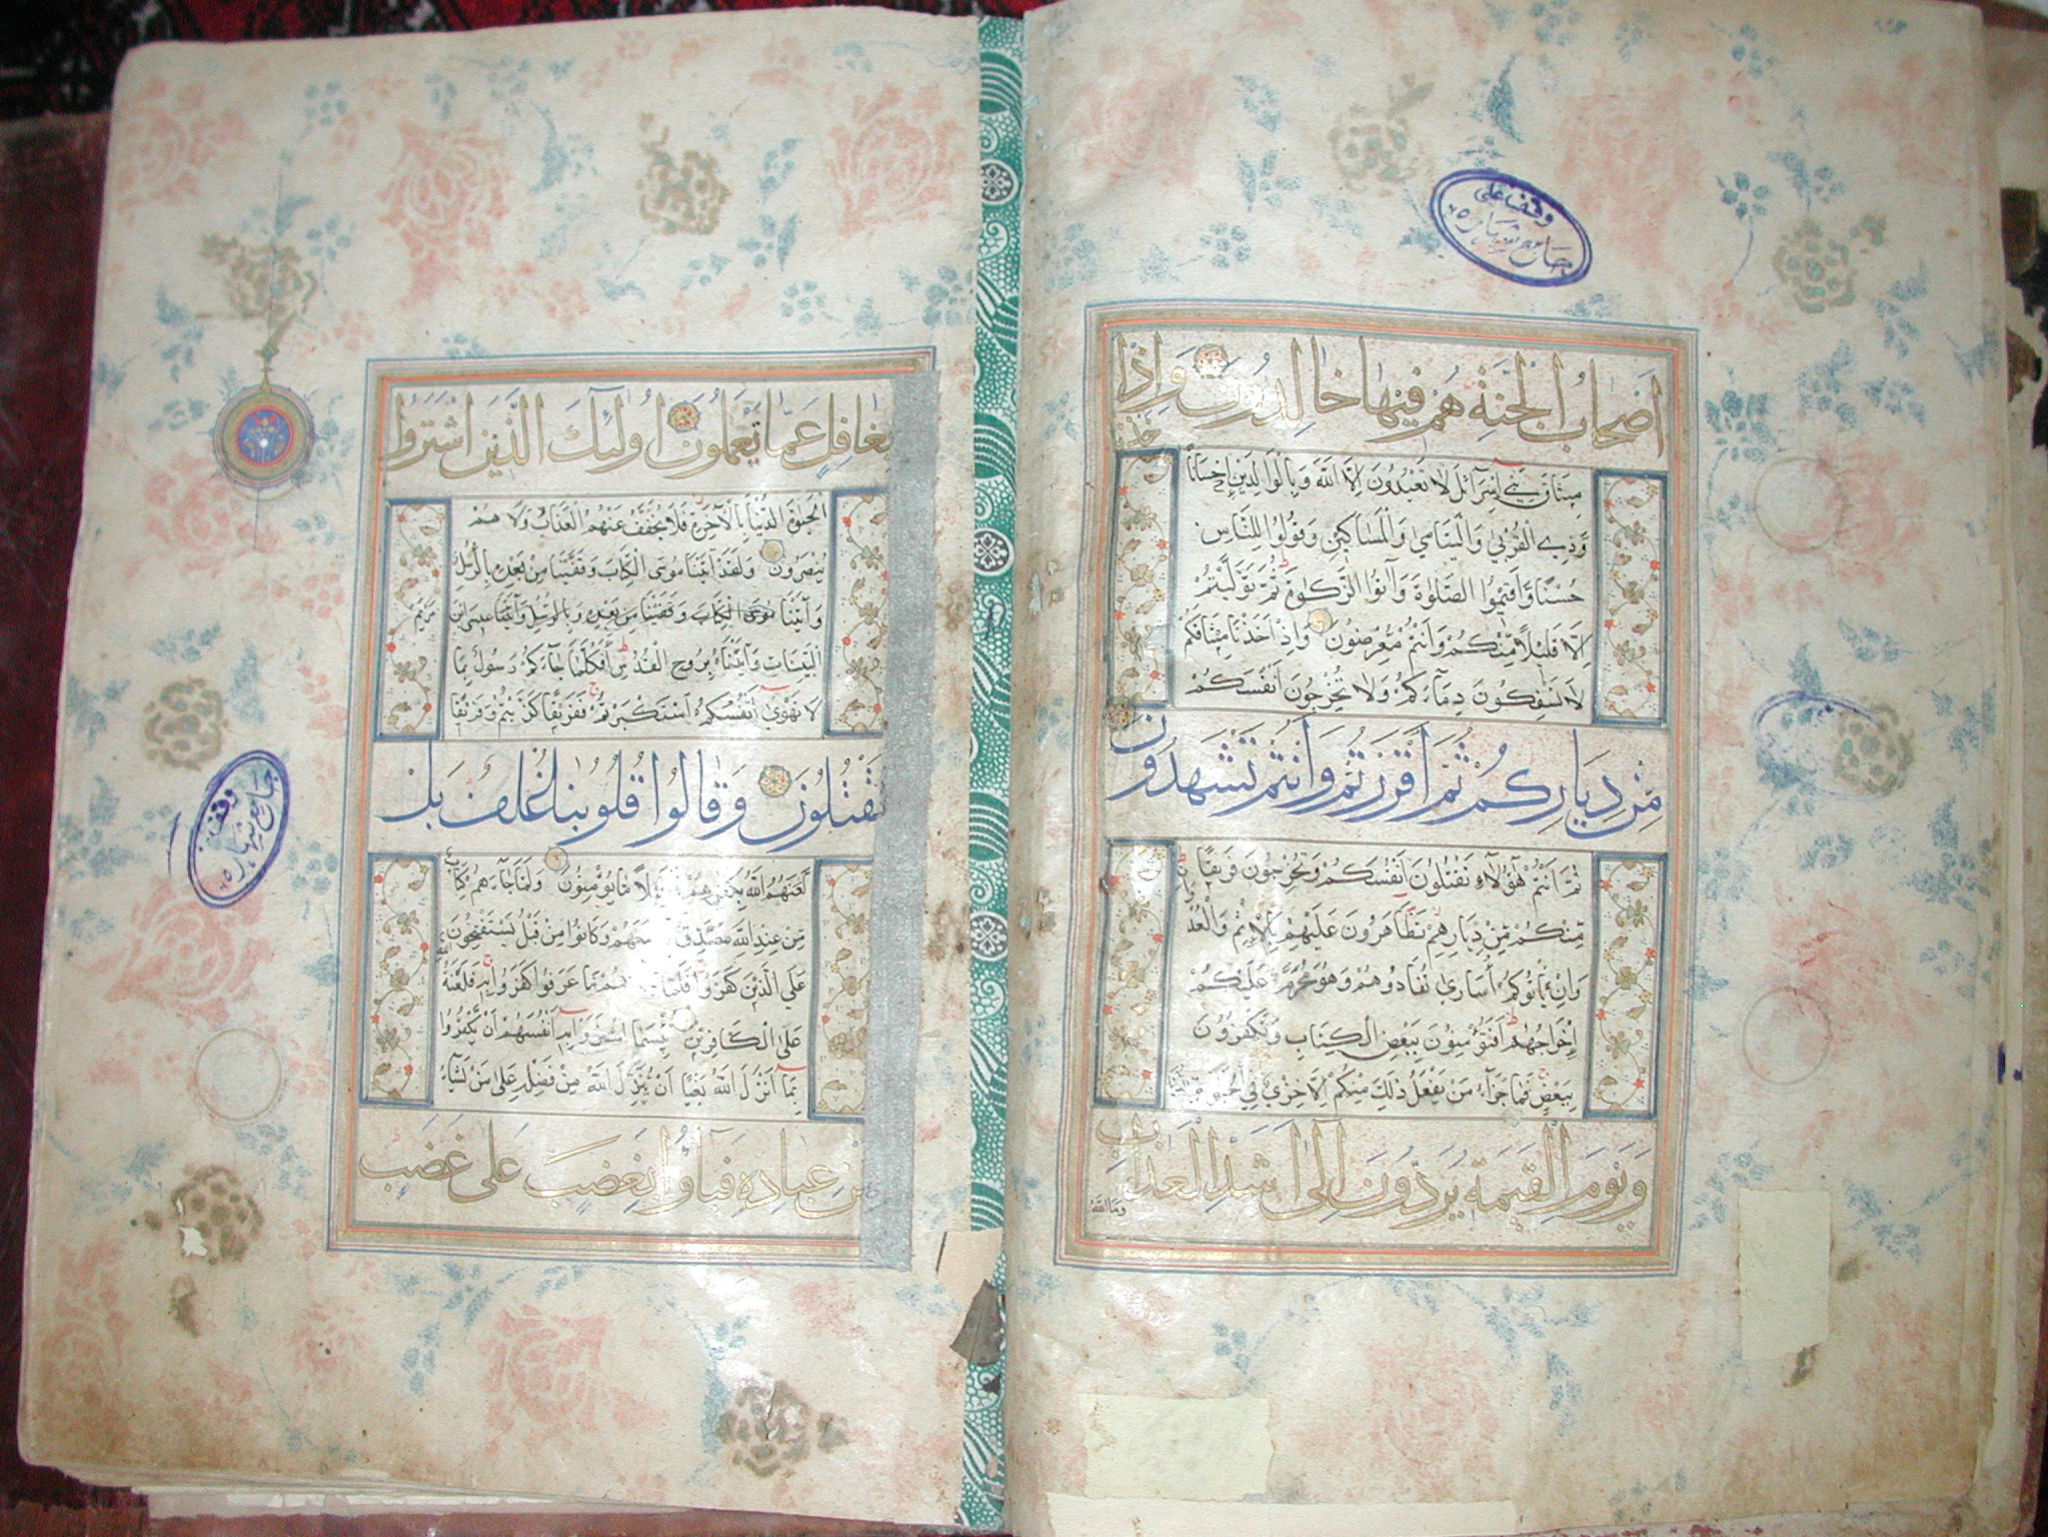 وقف على
جامع شهاره ٦٥
اصحاب الجنة هم فيها خالدون واذ
اخذنا
ميثاق بني اسرآئل لا تعبدون الا الله وبالوالدين احسانا
وذي القربى واليتامى والمساكين وقولوا للناس
حسنا واقيموا الصلوة وآتوا الزكوة ثم توليتم
الا قليلا منكم وانتم معرضون واذ اخذنا ميثاقكم
لا تسفكون دمآءكم ولا تخرجون انفسكم
من دياركم ثم اقررتم وانتم تشهدون
ثم انتم هؤلاء تقتلون انفسكم وتخرجون فريقا
منكم من ديارهم تظاهرون عليهم بالاثم والعد
وان
وان يأتوكم أسارى تفادوهم وهو محرم عليكم
اخراجهم افتؤمنون ببعض الكتاب وتكفرون
ببعض فما جزآء من يفعل ذلك منكم الا خزي في الحيوة
ويوم القيمة يردون الى اشد العذاب
وما الله
بغافل عما تعملون اولئك الذين اشتروا
الحيوة الدنيا بالآخرة فلا يخفف عنهم العذاب ولا هم
ينصرون ولقد آتينا موسى الكتاب وقفينا من بعده بالرسل
وآتينا موسى الكتاب وقفينا من بعده وبالرسل وآتينا عيسى ابن مريم
البينات وايدناه بروح القدس أفكلما جآءكم رسول بما
لا تهوى انفسكم استكبرتم ففريقا كذبتم وفريقا
تقتلون وقالوا قلوبنا غلف بل
لعنهم الله بكفرهم فقليلا ما يؤمنون ولما جآءهم كتاب
من عند الله مصدق معهم وكانوا من قبل يستفتحون
على الذين كفروا فلما هم ما عرفوا كفروا به فلعنة الله
على الكافرين بئسما اشتروا به انفسهم ان يكفروا
بما انزل الله بغيا ان ينزل الله من فضله على من يشآء
من عباده فبآؤا بغضب على غضب
وقف
جامع شهاره ٦٥